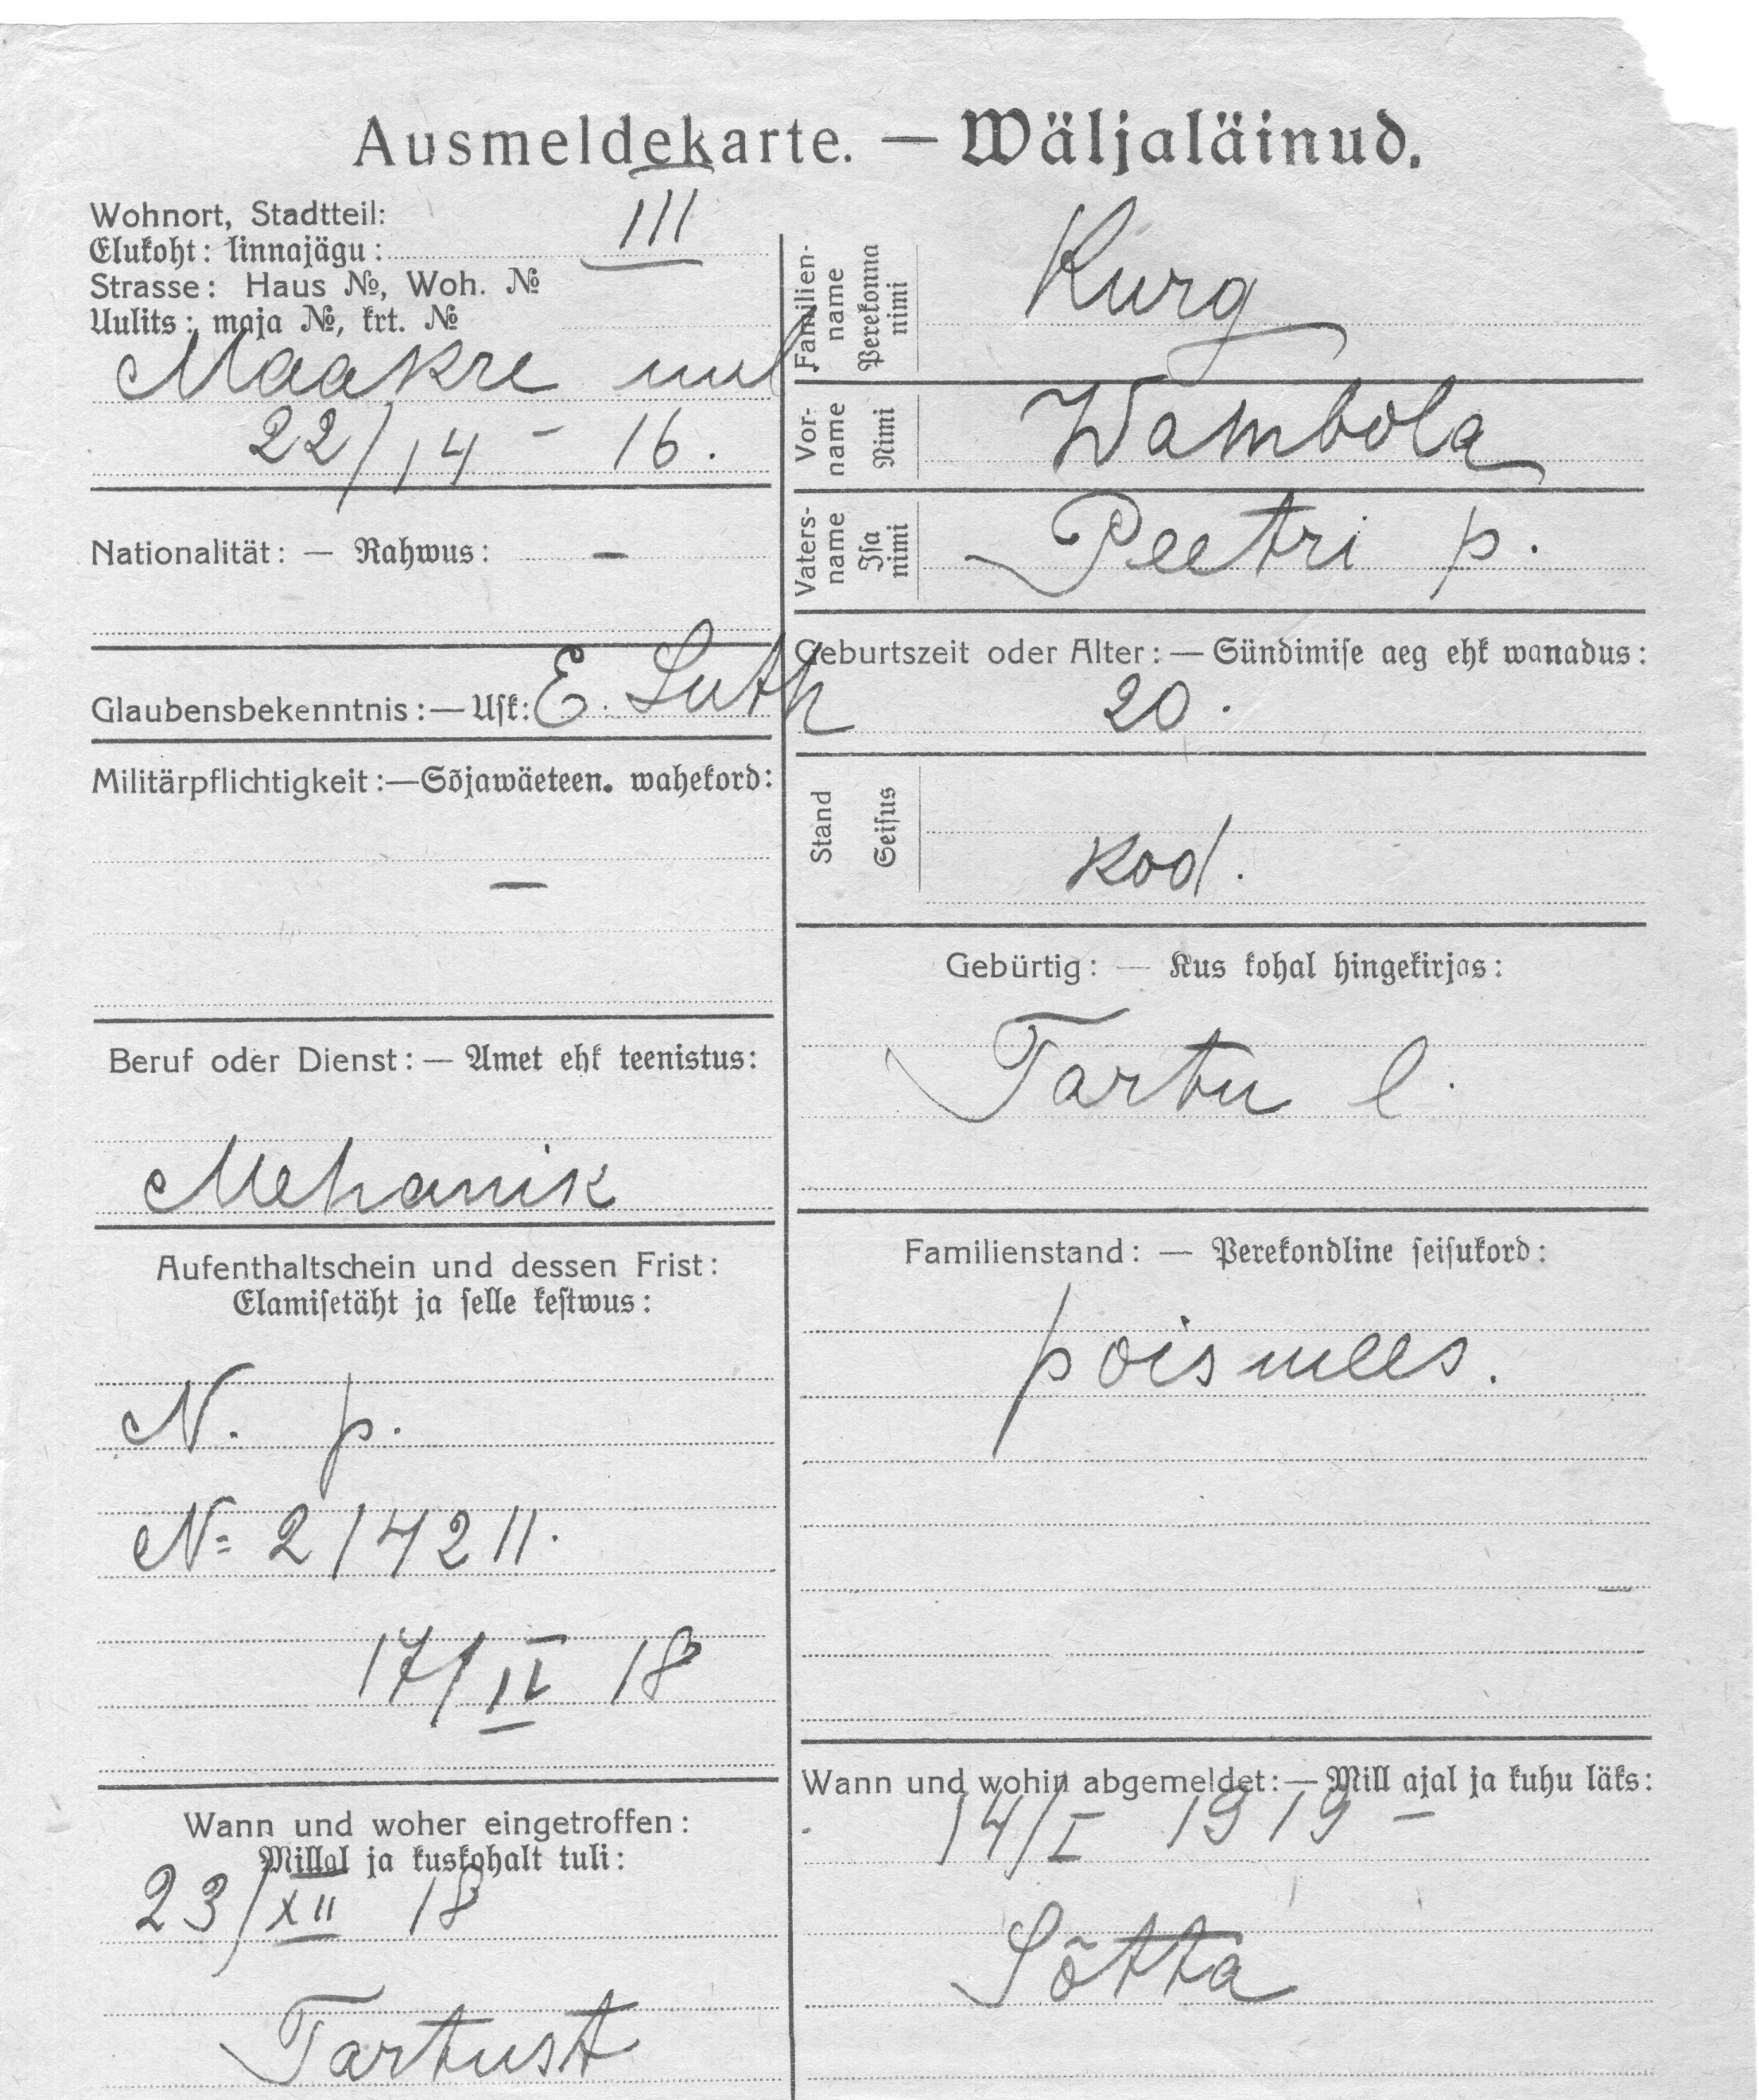 Ausmeldekarte. — Wäljaläinud.
Wohnort, Stadtteil:
Elukoht: linnajägu: III
Strasse: Haus №, Woh. №
Uulits: maja №, krt. №
Maakre uul
22/14 - 16.
Nationalität: — Rahwus: —
Glaubensbekenntnis: — Usk: E. Luth
Militärpflichtigkeit: — Sõjawäeteen. wahekord:
—
Beruf oder Dienst: — Amet ehk teenistus:
Mehanik
Aufenthaltschein und dessen Frist:
Elamisetäht ja selle kestwus:
N. p.
N= 214211.
17/IV 18
Wann und woher eingetroffen:
Millal ja kuskohalt tuli:
23/XII 18
Tartust
Familien-
name
Perekonna
nimi
Kurg
Vor-
name
Nimi
Wambola
Vaters-
name
Isa
nimi
Peetri p.
Geburtszeit oder Alter: — Sündimise aeg ehk wanadus:
20.
Stand
Seisus
Kod.
Gebürtig: — Kus kohal hingekirjas:
Tartu l.
Familienstand: — Perekondline seisukord:
poismees.
Wann und wohin abgemeldet: — Mill ajal ja kuhu läks:
14/I 1919 —
Sõtta